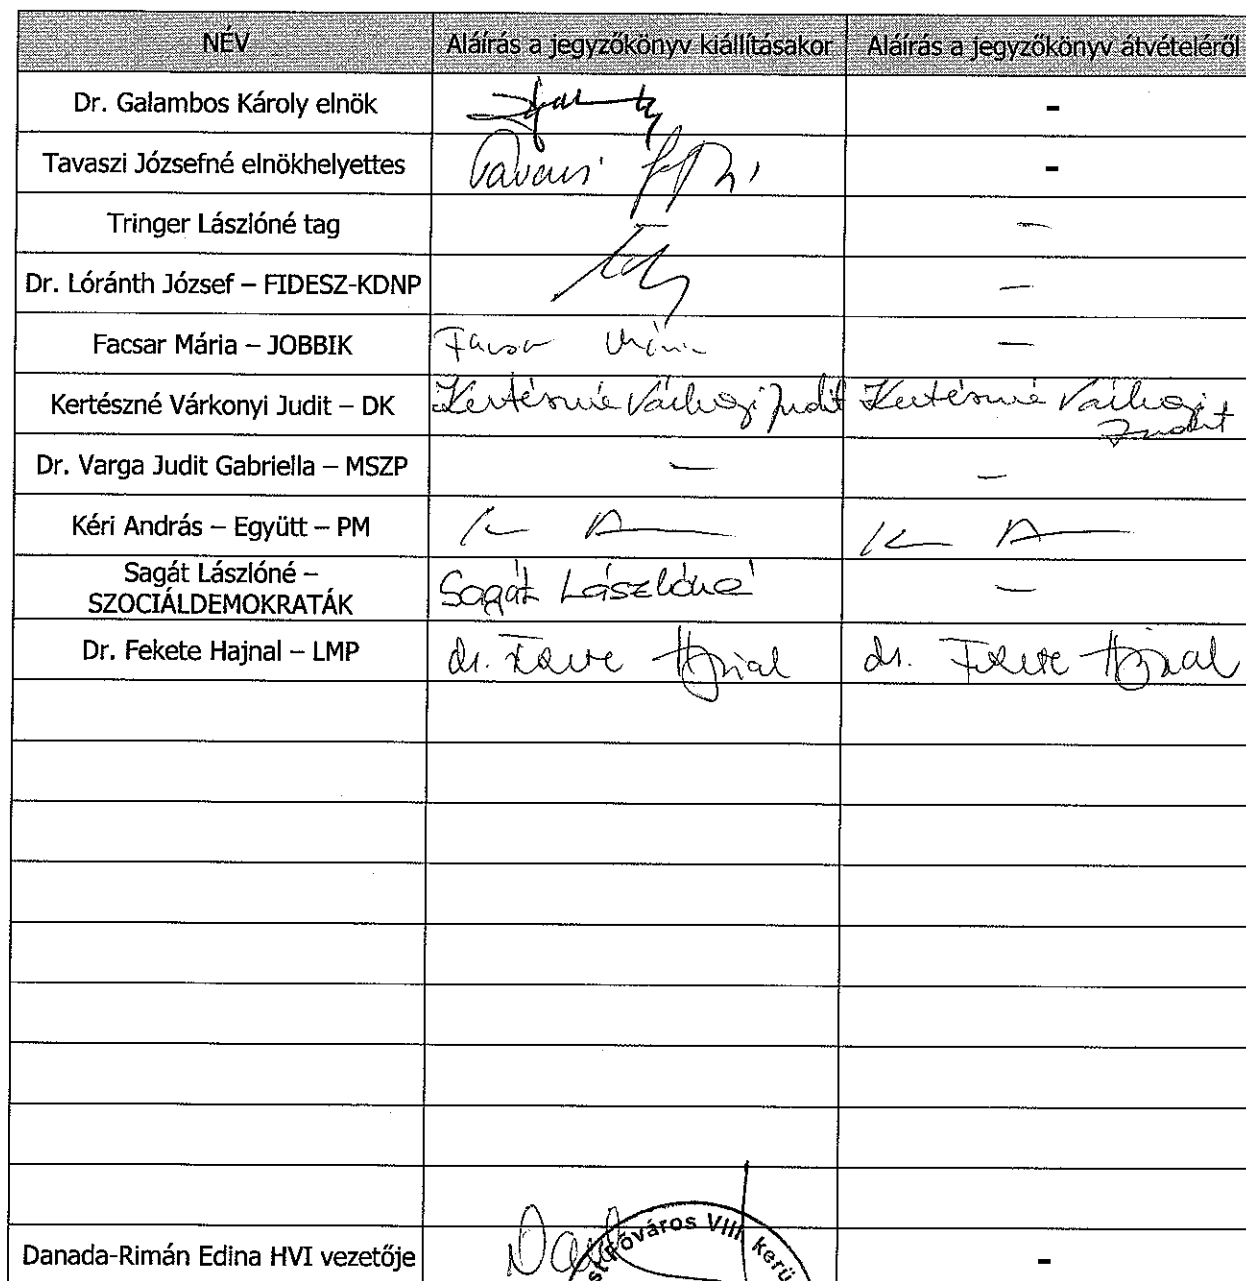 NÉV Aláírás a jegyzőkönyv kiállításakor Aláírás a jegyzőkönyv átvételéről
Dr. Galambos Károly elnök -
Tavaszi Józsefné elnökhelyettes -
Tringer Lászlóné tag —
Dr. Lóránth József – FIDESZ-KDNP —
Facsar Mária – JOBBIK Facsar Mária —
Kertészné Várkonyi Judit – DK Kertészné Várkonyi Judit Kertészné Várkonyi
Judit
Dr. Varga Judit Gabriella – MSZP — —
Kéri András – Együtt – PM
Sagát Lászlóné –
SZOCIÁLDEMOKRATÁK Sagát Lászlóné —
Dr. Fekete Hajnal – LMP dr. Fekete Hajnal dr. Fekete Hajnal
Főváros VIII. kerü
Danada-Rimán Edina HVI vezetője -